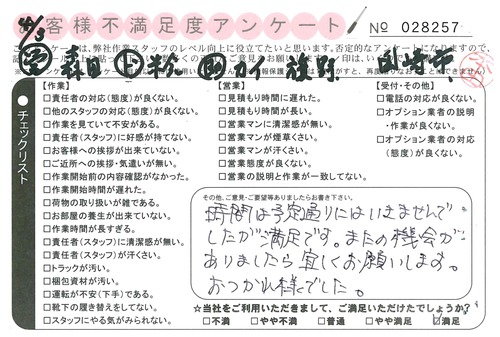 お客様不満足度アンケート
No 028257
4/3
森田
臨時中
チェックリスト
【作業】
□責任者の対応（態度）が良くない。
□他のスタッフの対応（態度）が良くない。
□作業を見ていて不安がある。
□責任者（スタッフ）に好感が持てない。
□お客様への挨拶が出来ていない。
□ご近所への挨拶・気遣いが無い。
□作業開始前の内容確認がなかった。
□作業開始時間が遅れた。
□荷物の取り扱いが雑である。
□お部屋の養生が出来ていない。
□作業時間が長すぎる。
□責任者（スタッフ）に清潔感が無い。
□責任者（スタッフ）が汗くさい。
□トラックが汚い。
□梱包資材が汚い。
□運転が不安（下手）である。
□靴下の履き替えをしてない。
□スタッフにやる気がみられない。
【営業】
□見積もり時間に遅れた。
□見積もり時間が長い。
□営業マンに清潔感が無い。
□営業マンが煙草くさい。
□営業マンが汗くさい。
□営業態度が良くない。
□営業の説明と作業が一致してない。
【受付・その他】
□電話の対応が良くない。
□オプション業者の説明
・作業が良くない。
□オプション業者の対応
（態度）が良くない。
その他、ご意見・ご要望等ありましたらお書き下さい。
時間は予定通りにはいきませんで
したが満足です。またの機会が
ありましたら宜しくお願いします。
おつかれ様でした。
☆当社をご利用いただきまして、ご満足いただけたでしょうか？
□不満 □やや不満 □普通 □やや満足 ☑満足